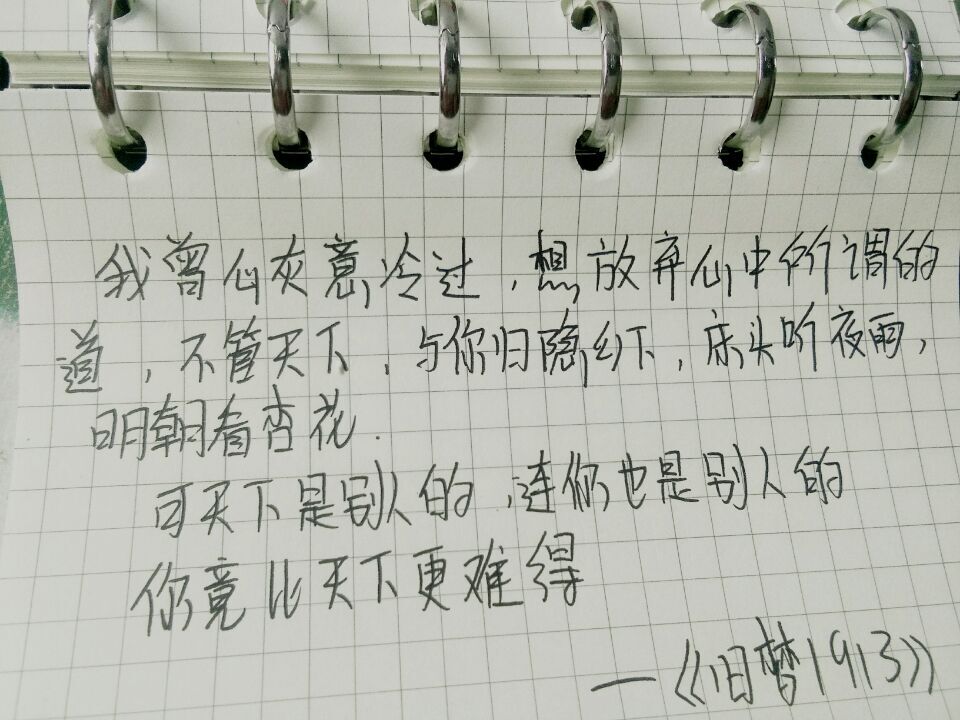 我曾心灰意冷过，想放弃心中所谓的
道，不管天下，与你归隐乡下，床头听夜雨，
明朝看杏花.
可天下是别人的，连你也是别人的
你竟比天下更难得
—《旧梦1913》